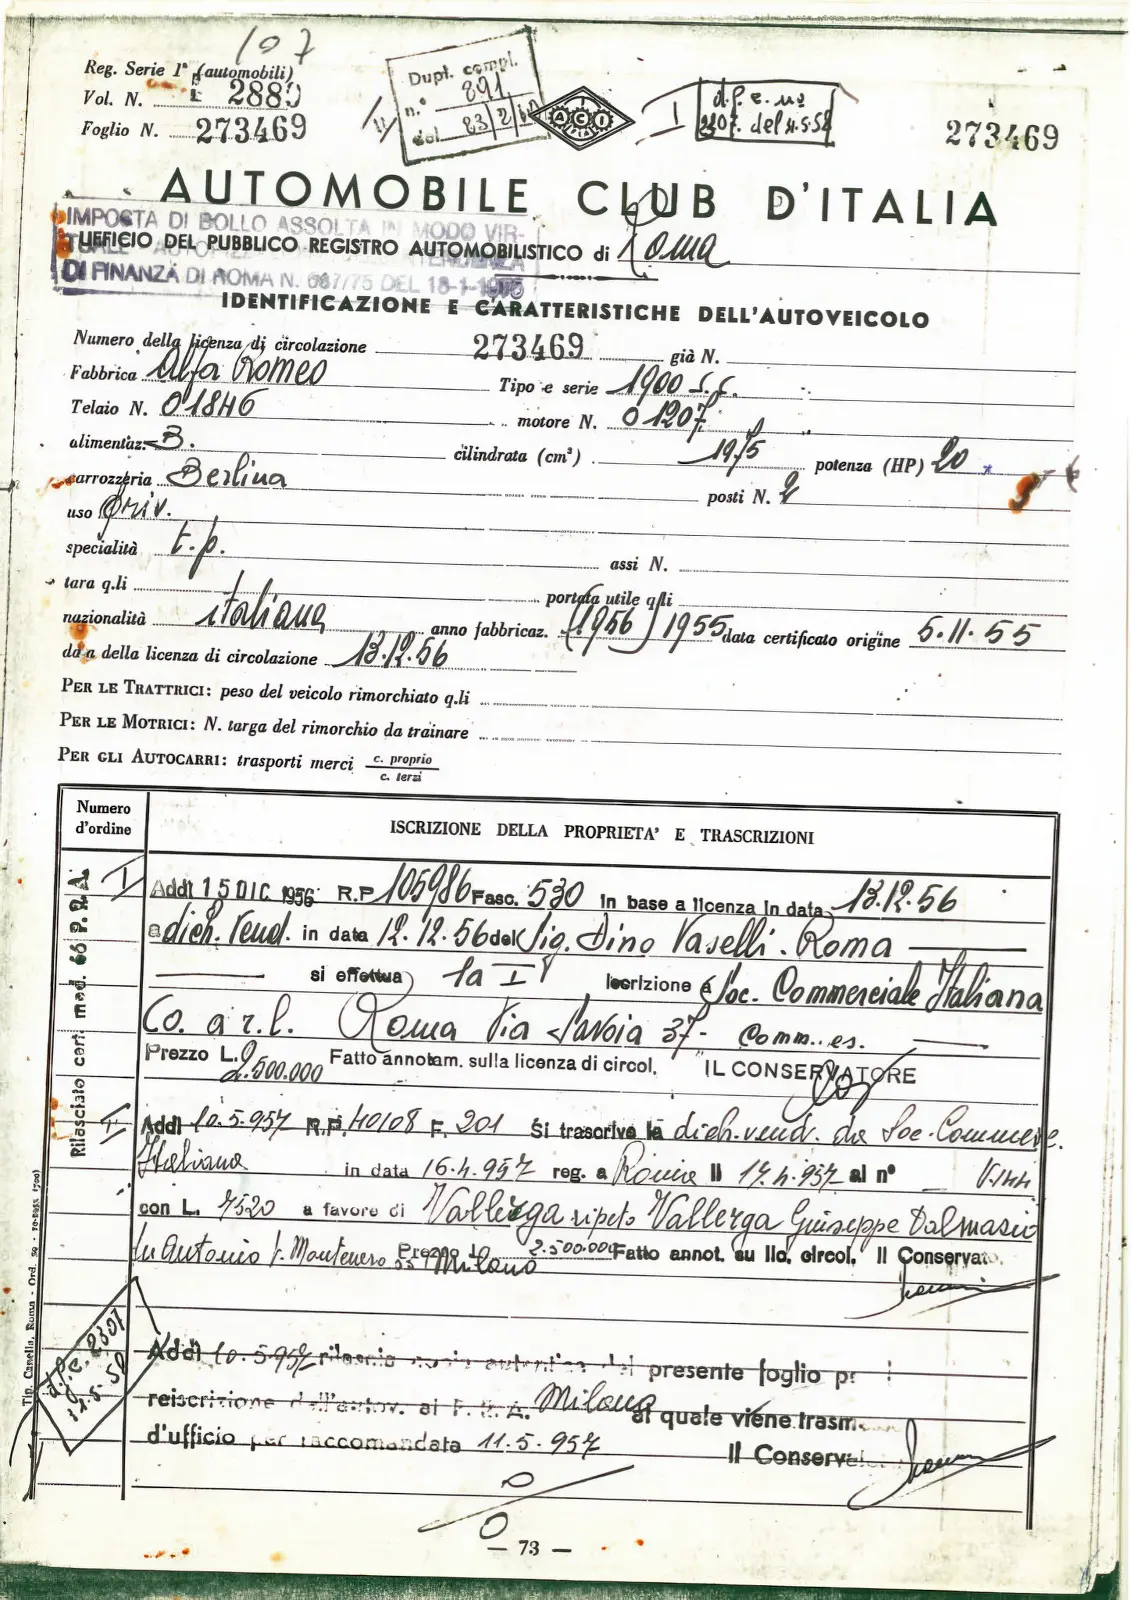 107
Reg. Serie 1ª (automobili)
Vol. N. 2889
Foglio N. 273469
Dupl. compl.
n.° 891
del 23/2/
ACI
I
d.f.c. nº
2307. del 21.5.58
273469
AUTOMOBILE CLUB D'ITALIA
IMPOSTA DI BOLLO ASSOLTA IN MODO VIR-
UFFICIO DEL PUBBLICO REGISTRO AUTOMOBILISTICO di Roma
DI FINANZA DI ROMA N. 667/75 DEL 18-1-1975
IDENTIFICAZIONE E CARATTERISTICHE DELL'AUTOVEICOLO
Numero della licenza di circolazione 273469 già N.
Fabbrica Alfa Romeo Tipo e serie 1900 S.S.
Telaio N. 01846 motore N. 01207
alimentaz. B. cilindrata (cm³) 1975 potenza (HP) 20
carrozzeria Berlina posti N. 2
uso priv.
specialità t.p. assi N.
tara q.li portata utile q.li
nazionalità italiana anno fabbricaz. (1956) 1955 data certificato origine 5.11.55
data della licenza di circolazione 13.12.56
PER LE TRATTRICI: peso del veicolo rimorchiato q.li
PER LE MOTRICI: N. targa del rimorchio da trainare
PER GLI AUTOCARRI: trasporti merci c. proprio
c. terzi
Numero d'ordine
ISCRIZIONE DELLA PROPRIETA' E TRASCRIZIONI
Rilasciato cert. mod. 66 P.R.A.
I
Addì 15 DIC. 1956 R.P. 105986 Fasc. 530 In base a licenza in data 13.12.56
e dich. Vend. in data 12.12.56 del Sig. Dino Vaselli. Roma
si effettua la Iª Iscrizione a Soc. Commerciale Italiana
Co. a r.l. Roma Via Savoia 37- Comm. es.
Prezzo L. 2.500.000 Fatto annotam. sulla licenza di circol. IL CONSERVATORE
II
Addì 10.5.957 R.P. 40108 F. 201 Si trascrive la dich. vend. da Soc. Commerc.
Italiana in data 16.4.957 reg. a Roma il 17.4.957 al n°
con L. 7520 a favore di Vallerga ripeto Vallerga Giuseppe Dalmazio
fu Antonio v. Montenero 55 Milano Prezzo L. 2.500.000 Fatto annot. su lic. circol. Il Conservat.
d.f.c. 2307
21.5.58
Addì 10.5.957 rilascio copia autentica del presente foglio p
reiscrizione dell'autov. al P.R.A. Milano al quale viene trasm
d'ufficio per raccomandata 11.5.957 Il Conservat
Tip. Canella, Roma - Ord.
— 73 —